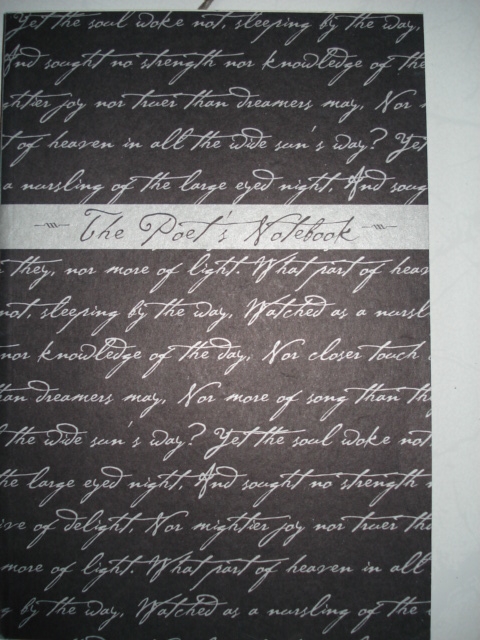 Yet the soul woke not, sleeping by the way,
And sought no strength nor knowledge of the
ghtier joy nor truer than dreamers may, Nor
t of heaven in all the wide sun's way? Yet
a nursling of the large eyed night, And soug
The Poet's Notebook
they, nor more of light. What part of heav
not, sleeping by the way, Watched as a nursl
nor knowledge of the day, Nor closer touch
an dreamers may, Nor more of song than th
the wide sun's way? Yet the soul woke not
he large eyed night, And sought no strength
ive of delight, Nor mightier joy nor truer th
more of light. What part of heaven in all
g by the way, Watched as a nursling of the